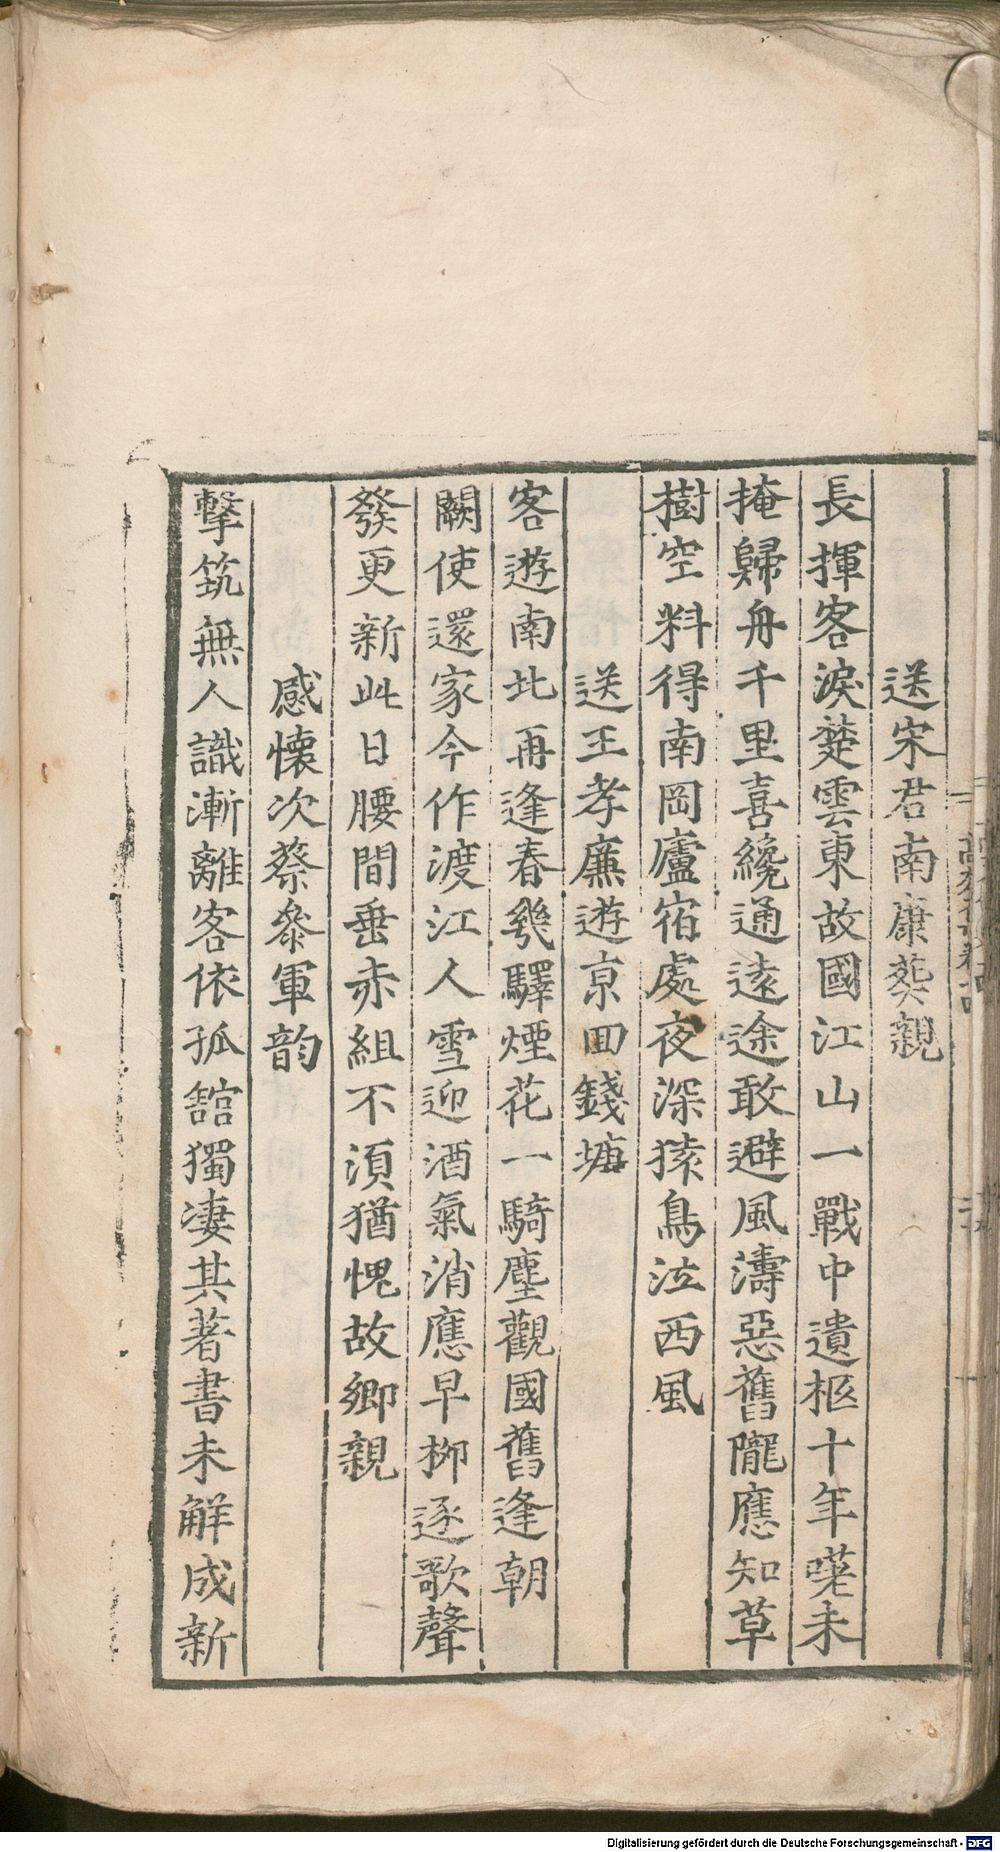 送宋君南康葬親
長揮客淚楚雲東故國江山一戰中遺柩十年嗟未
掩歸舟千里喜纔通遠途敢避風濤惡舊隴應知草
樹空料得南岡廬宿處夜深猿鳥泣西風
送王孝廉遊京囬錢塘
客遊南北再逢春幾驛煙花一騎塵觀國舊逢朝
闕使還家今作渡江人雪迎酒氣消應早柳逐歌聲
發更新此日腰間垂赤組不湏猶愧故鄉親
感懷次蔡叅軍韵
擊筑無人識漸離客依孤舘獨凄其著書未解成新
Digitalisierung gefördert durch die Deutsche Forschungsgemeinschaft - DFG